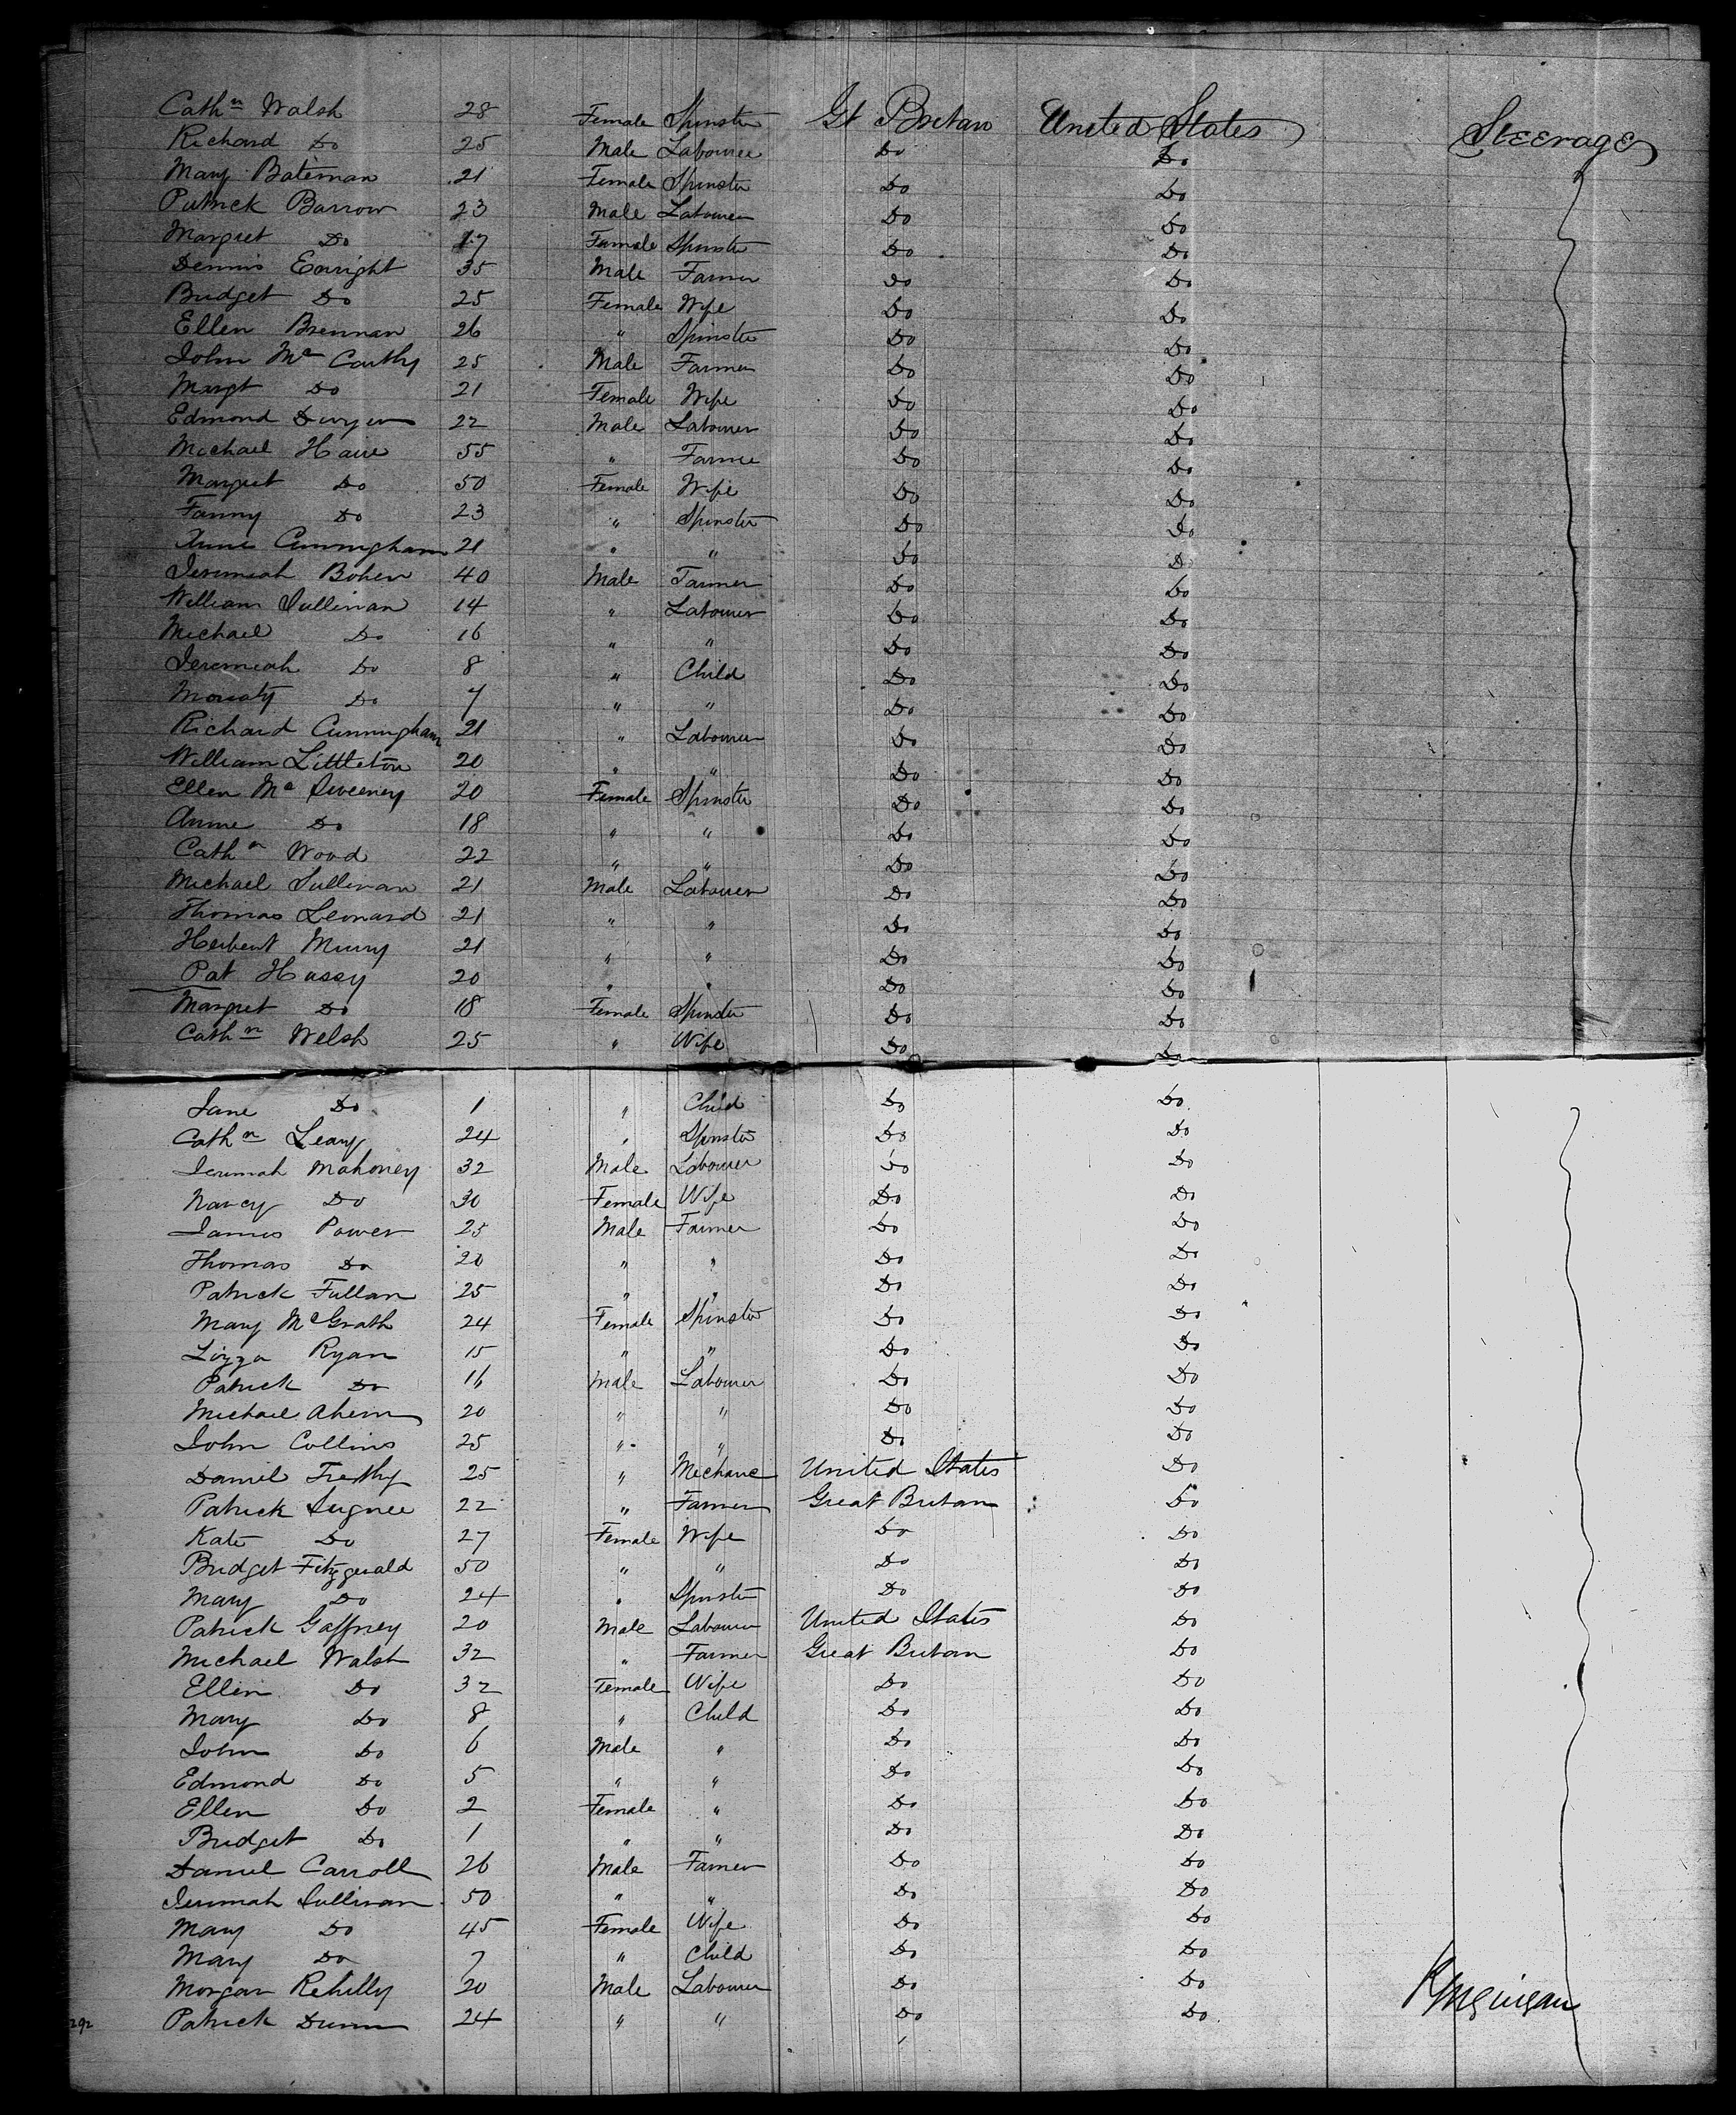 Cathn Walsh 28 Female Spinster Gt Britain United States Steerage
Richard Do 25 Male Labourer Do Do
Mary Bateman 21 Female Spinster Do Do
Patrick Barrow 23 Male Labourer Do Do
Margret Do 17 Female Spinster Do Do
Dennis Enright 35 Male Farmer Do Do
Bridget Do 25 Female Wife Do Do
Ellen Brennan 26 " Spinster Do Do
John Mc Carthy 25 Male Farmer Do Do
Margt Do 21 Female Wife Do Do
Edmond Dwyer 22 Male Labourer Do Do
Michael Haire 55 " Farmer Do Do
Margret Do 50 Female Wife Do Do
Fanny Do 23 " Spinster Do Do
Anne Cunningham 21 " " Do Do
Jeremiah Bohen 40 Male Farmer Do Do
William Sullivan 14 " Labourer Do Do
Michael Do 16 " " Do Do
Jeremiah Do 8 " Child Do Do
Do 7 " " Do Do
Richard Cunningham 21 " Labourer Do Do
William Littleton 20 " " Do Do
Ellen Mc Sweeney 20 Female Spinster Do Do
Anne Do 18 " " Do Do
Cathn Wood 22 " " Do Do
Michael Sullivan 21 Male Labourer Do Do
Thomas Leonard 21 " " Do Do
Herbert Murry 21 " " Do Do
Pat Hassy 20 " " Do Do
Margret Do 18 Female Spinster Do Do
Cathn Welsh 25 " Wife Do Do
Jane Do 1 " Child Do Do
Cathn Leary 24 " Spinster Do Do
Jerimah Mahoney 32 Male Labourer Do Do
Nancy Do 30 Female Wife Do Do
James Power 25 Male Farmer Do Do
Thomas Do 20 " " Do Do
Patrick Fullan 25 " " Do Do
Mary McGrath 24 Female Spinster Do Do
Lizza Ryan 15 " " Do Do
Patrick Do 16 Male Labourer Do Do
Michael Ahern 20 " " Do Do
John Collins 25 " " Do Do
Daniel 25 " Mechanic United States Do
Patrick 22 " Farmer Great Britain Do
Kate Do 27 Female Wife Do Do
Bridget Fitzgerald 50 " " Do Do
Mary Do 24 " Spinster Do Do
Patrick Gaffney 20 Male Labourer United States Do
Michael Walsh 32 " Farmer Great Britain Do
Ellen Do 32 Female Wife Do Do
Mary Do 8 " Child Do Do
John Do 6 Male " Do Do
Edmond Do 5 " " Do Do
Ellen Do 2 Female " Do Do
Bridget Do 1 " " Do Do
Daniel Carroll 26 Male Farmer Do Do
Jerimah Sullivan 50 " " Do Do
Mary Do 45 Female Wife Do Do
Mary Do 7 " Child Do Do
Morgan Rehilly 20 Male Labourer Do Do
292 Patrick Dunn 24 " " Do Do